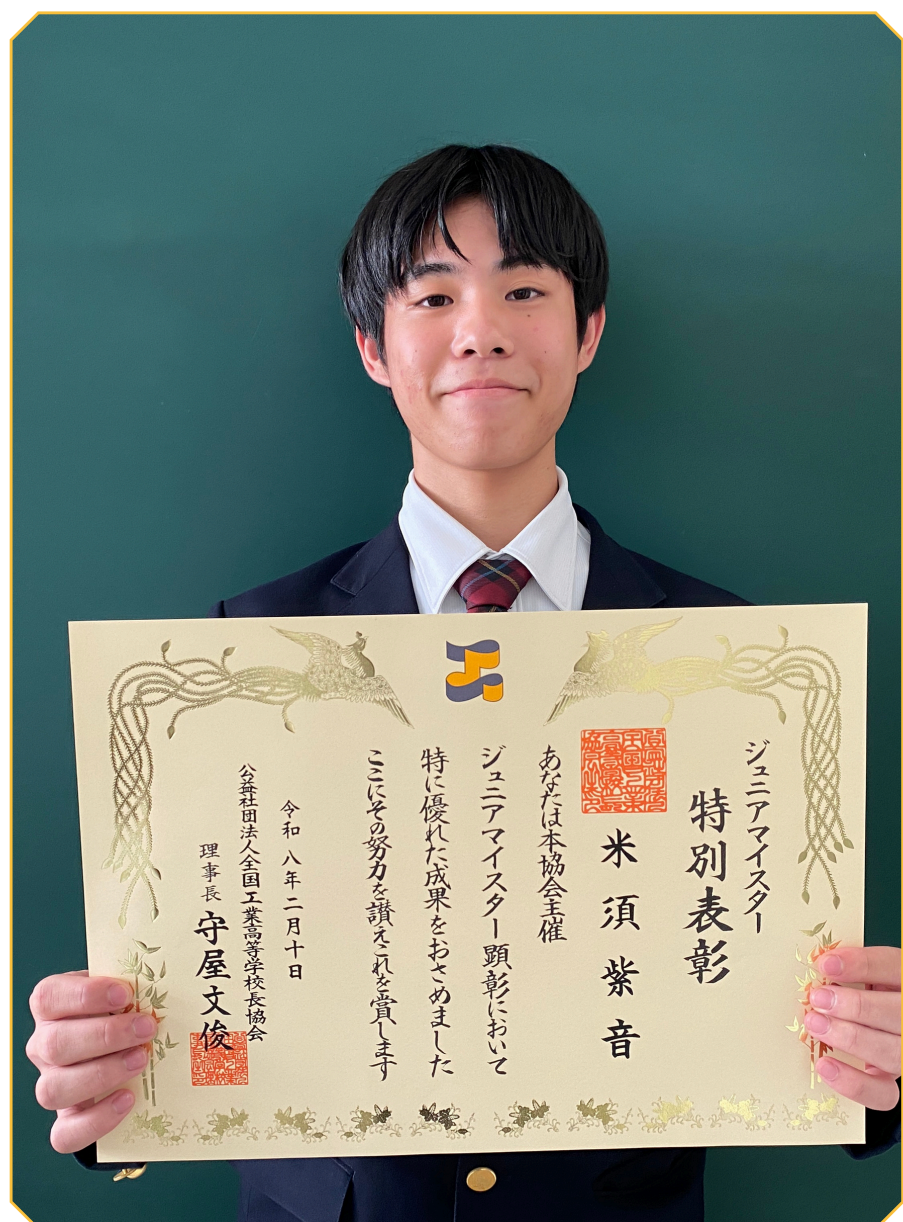 ジュニアマイスター
特別表彰
米須紫音
あなたは本協会主催
ジュニアマイスター顕彰において
特に優れた成果をおさめました
ここにその努力を讃えこれを賞します
令和八年二月十日
公益社団法人全国工業高等学校長協会
理事長 守屋文俊